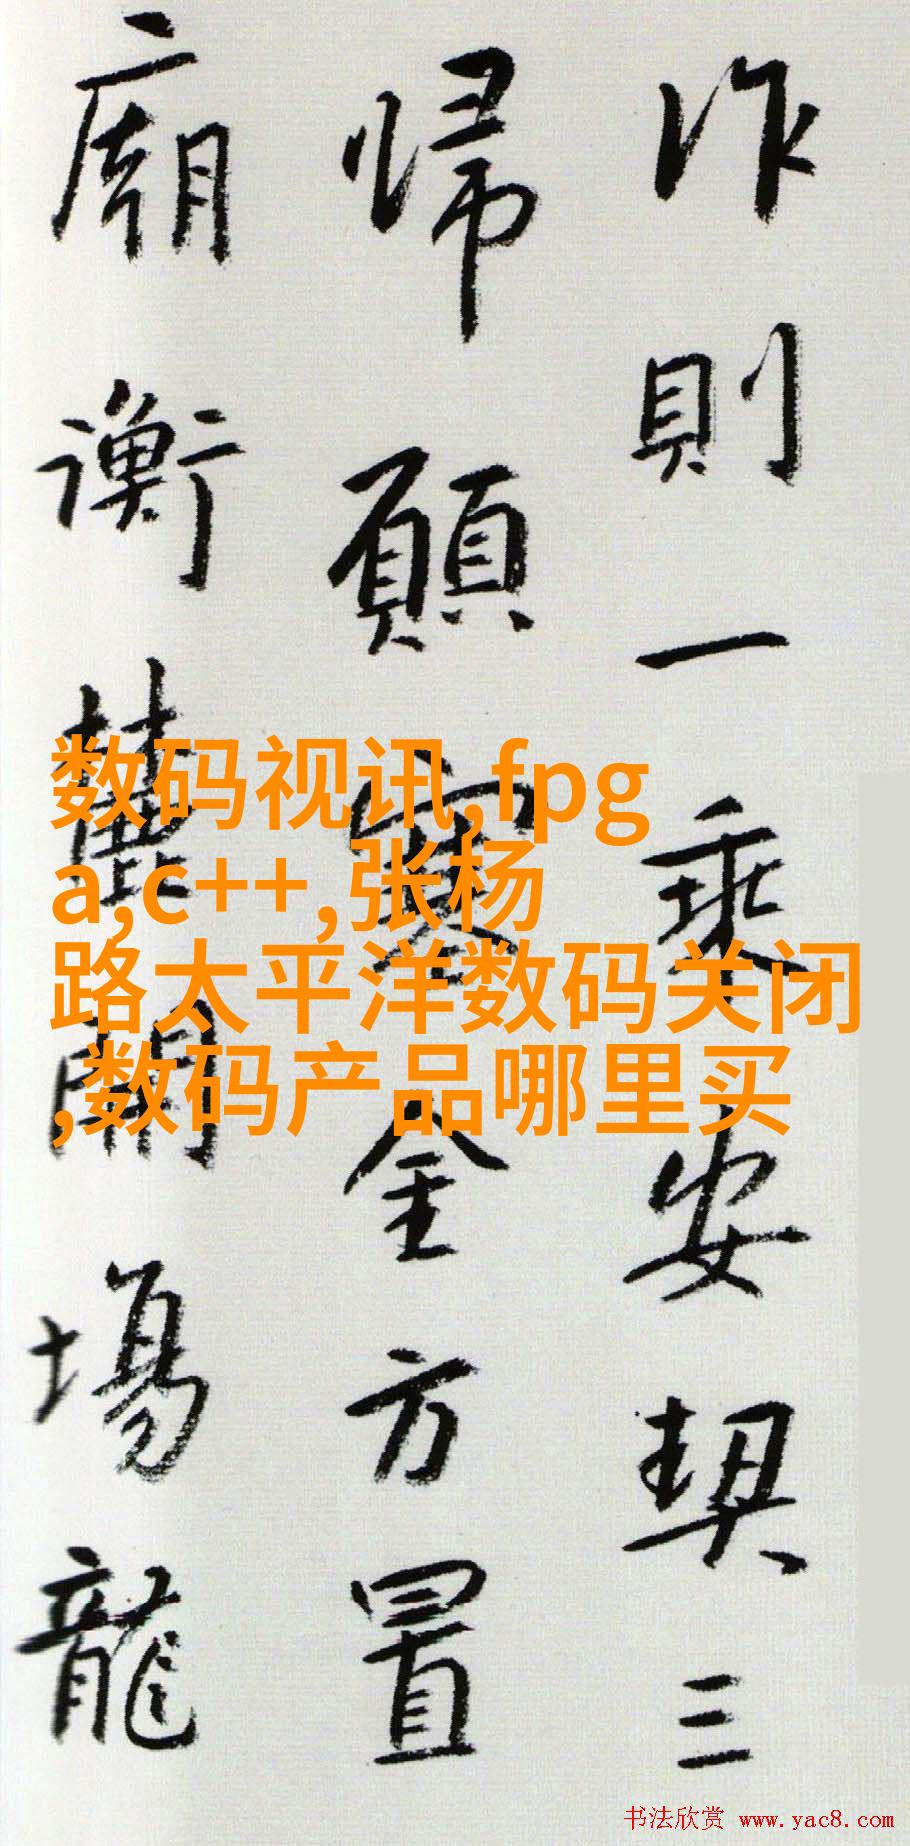 作則一乘安契三
歸願全方置
廟衡麓開場龍
数码视讯,fpg
a,c++,张杨
路太平洋数码关闭
,数码产品哪里买
书法欣赏 www.yac8.com